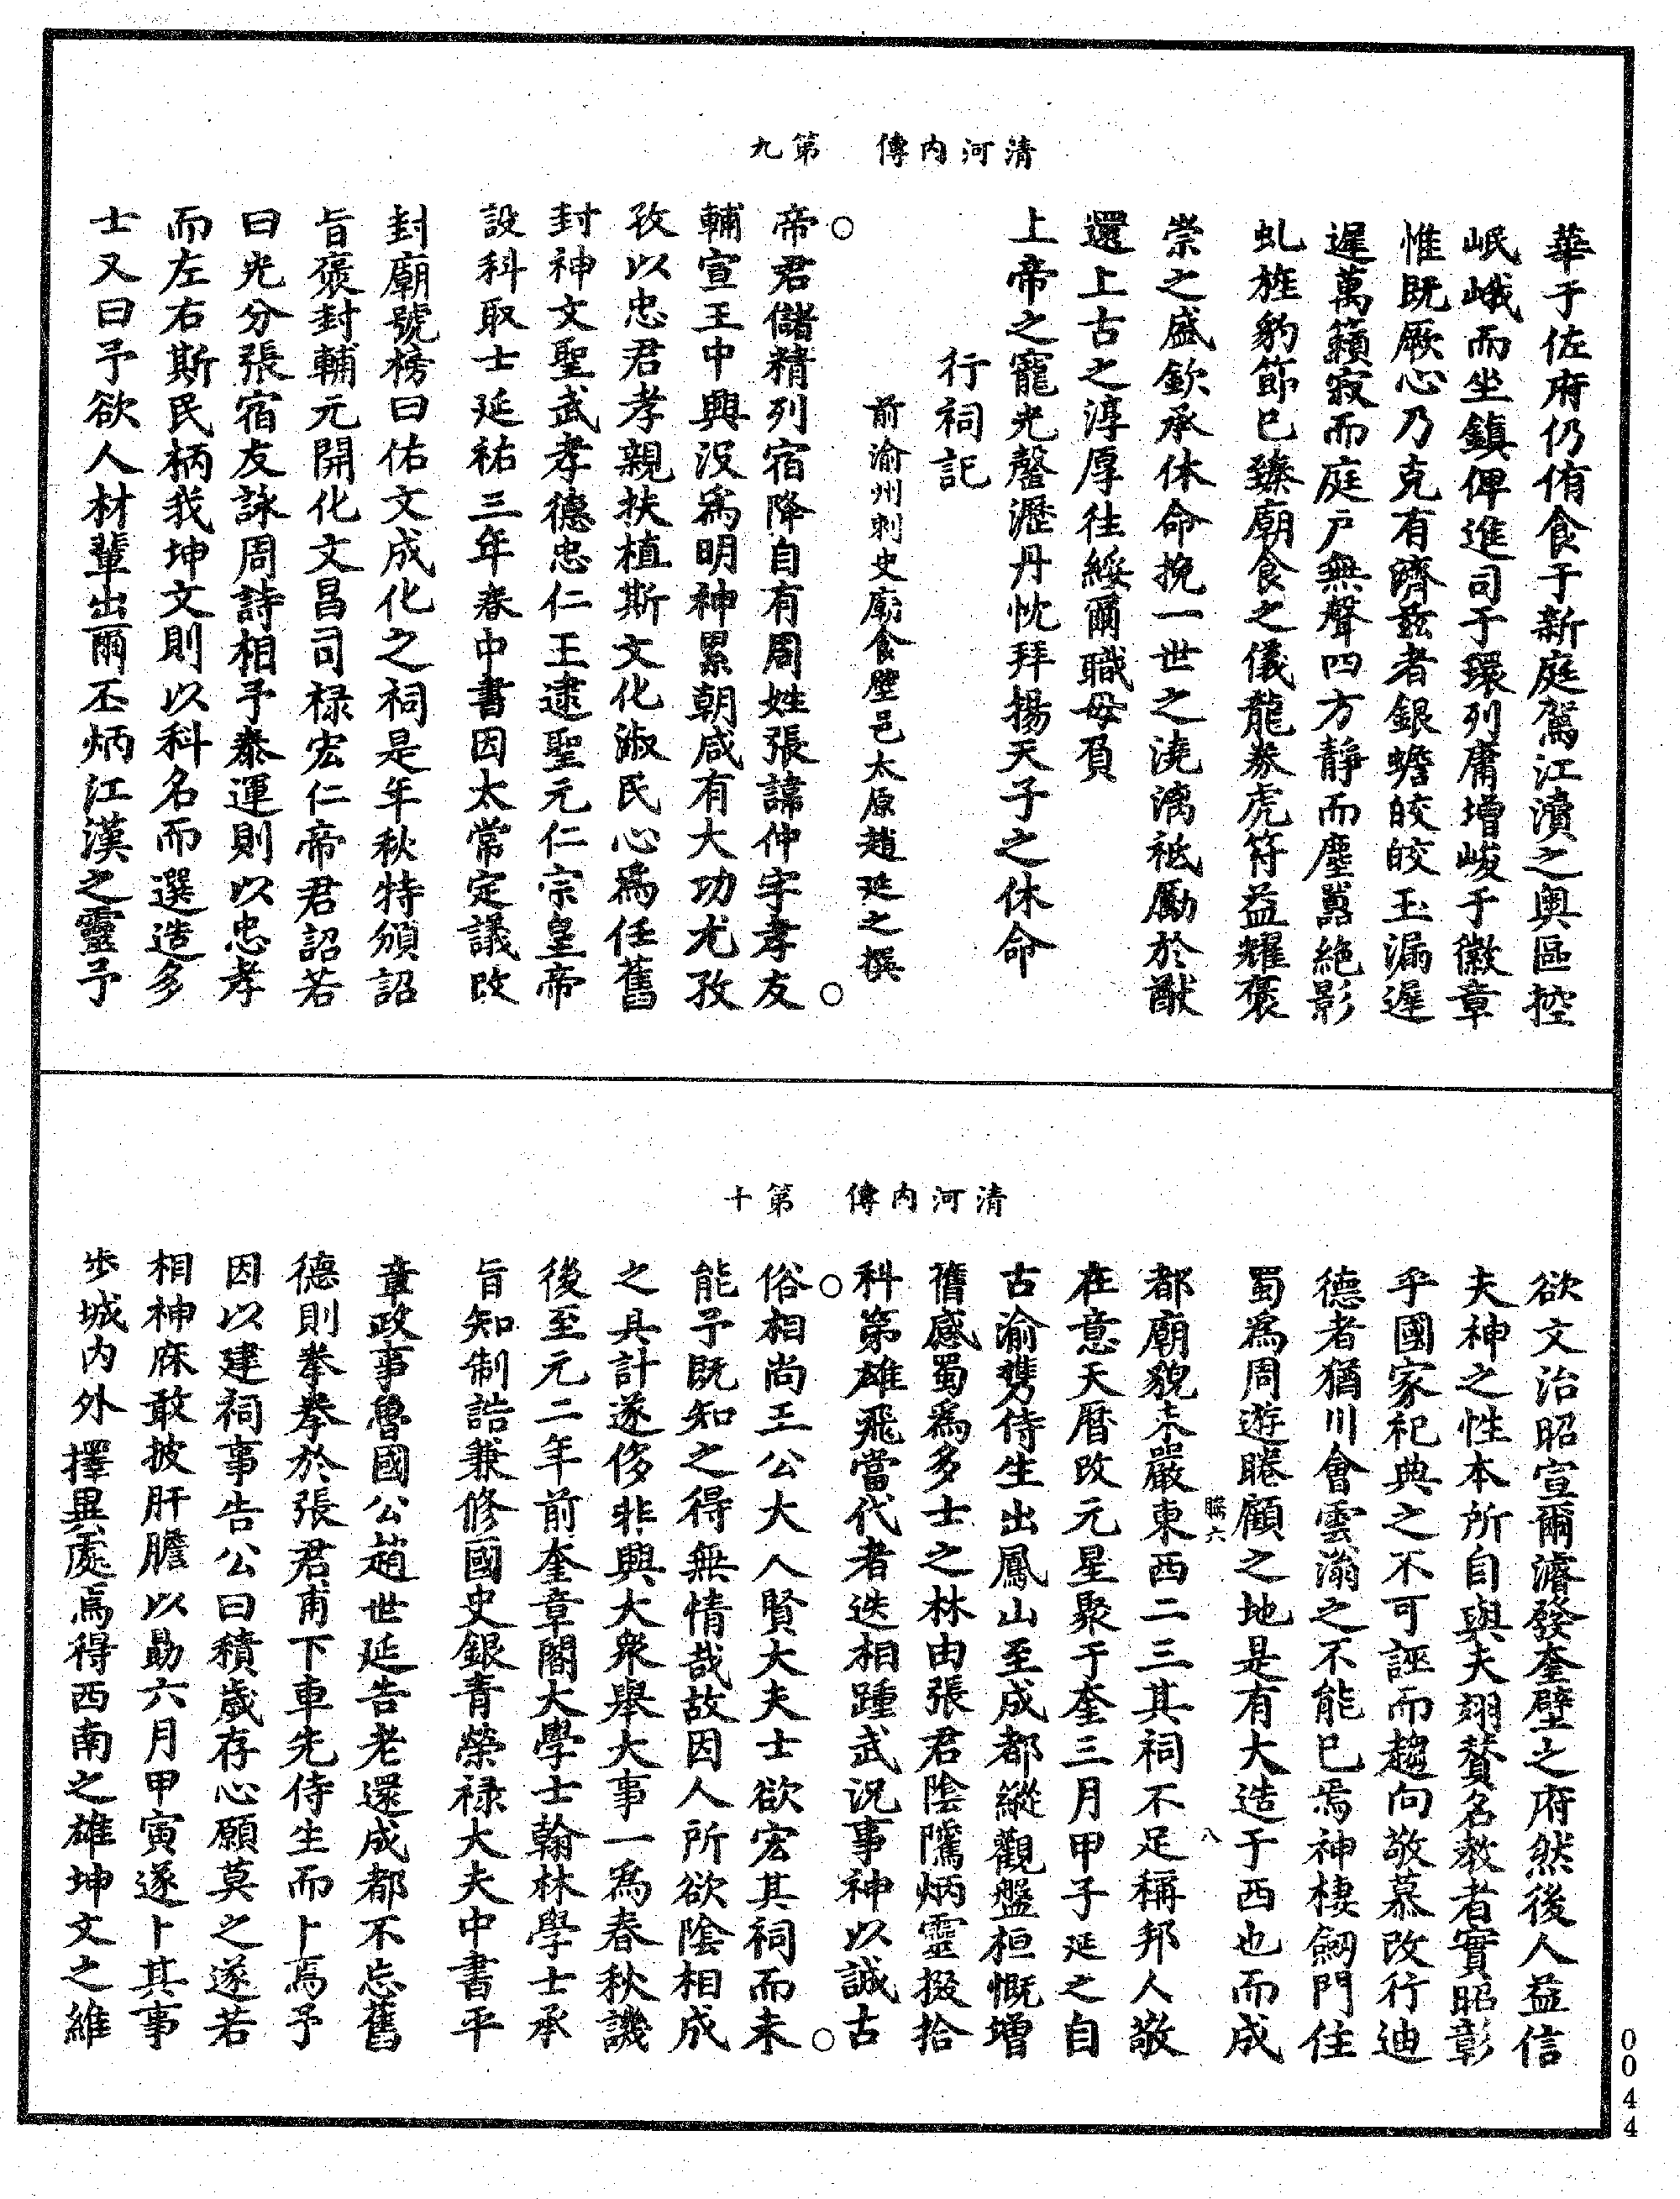 清河內傳　第九
華于佐府仍侑食于新庭駕江瀆之輿區控
岷峨而坐鎮俾進司于環列庸增峻于徽章
惟既厥心乃克有濟兹者銀蟾皎皎玉漏遲
遲萬籟寂而庭戶無聲四方靜而塵囂絶影
虬旌豹節已臻廟食之儀龍劵虎符益耀褒
崇之盛欽承休命挽一世之澆漓祗勵於猷
還上古之淳厚往綏爾職毋負
上帝之寵光罄瀝丹忱拜揚天子之休命
行祠記
前渝州刺史廟食壁邑太原趙延之撰
帝君儲精列宿降自有周姓張諱仲字孝友
輔宣王中興没爲明神累朝咸有大功尤孜
孜以忠君孝親扶植斯文化淑民心爲任舊
封神文聖武孝德忠仁王逮聖元仁宗皇帝
設科取士延祐三年春中書因太常定議改
封廟號榜曰佑文成化之祠是年秋特頒詔
旨褒封輔元開化文昌司禄宏仁帝君詔若
曰光分張宿友詠周詩相予泰運則以忠孝
而左右斯民柄我坤文則以科名而選造多
士又曰予欲人材輩出爾丕炳江漢之靈予
清河內傳　第十
欲文治昭宣爾濬發奎壁之府然後人益信
夫神之性本所自與夫翊贊名教者實昭彰
乎國家祀典之不可誣而趨向敬慕改行迪
德者猶川會雲滃之不能已焉神棲劒門住
蜀爲周遊睠顧之地是有大造于西也而成
都廟貌未嚴東西二三其祠不足稱邦人敬
在意天曆改元星聚于奎三月甲子延之自
古渝攜侍生出鳳山至成都縱觀盤桓慨增
舊感蜀爲多士之林由張君陰隲炳靈掇拾
科第雄飛當代者迭相踵武況事神以誠古
俗相尚王公大人賢大夫士欲宏其祠而未
能予既知之得無情哉故因人所欲陰相成
之具計遂侈非興大衆舉大事一爲春秋譏
後至元二年前奎章閣大學士翰林學士承
旨知制誥兼修國史銀青榮禄大夫中書平
章政事魯國公趙世延告老還成都不忘舊
德則拳拳於張君甫下車先侍生而卜焉予
因以建祠事告公曰積歲存心願莫之遂若
相神庥敢披肝膽以勛六月甲寅遂卜其事
步城內外擇異處焉得西南之雄坤文之維
騰六
八
0044